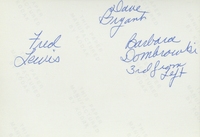 Dave
Bryant
Fred
Lewis
Barbara
Dombrowski
3rd from
Left